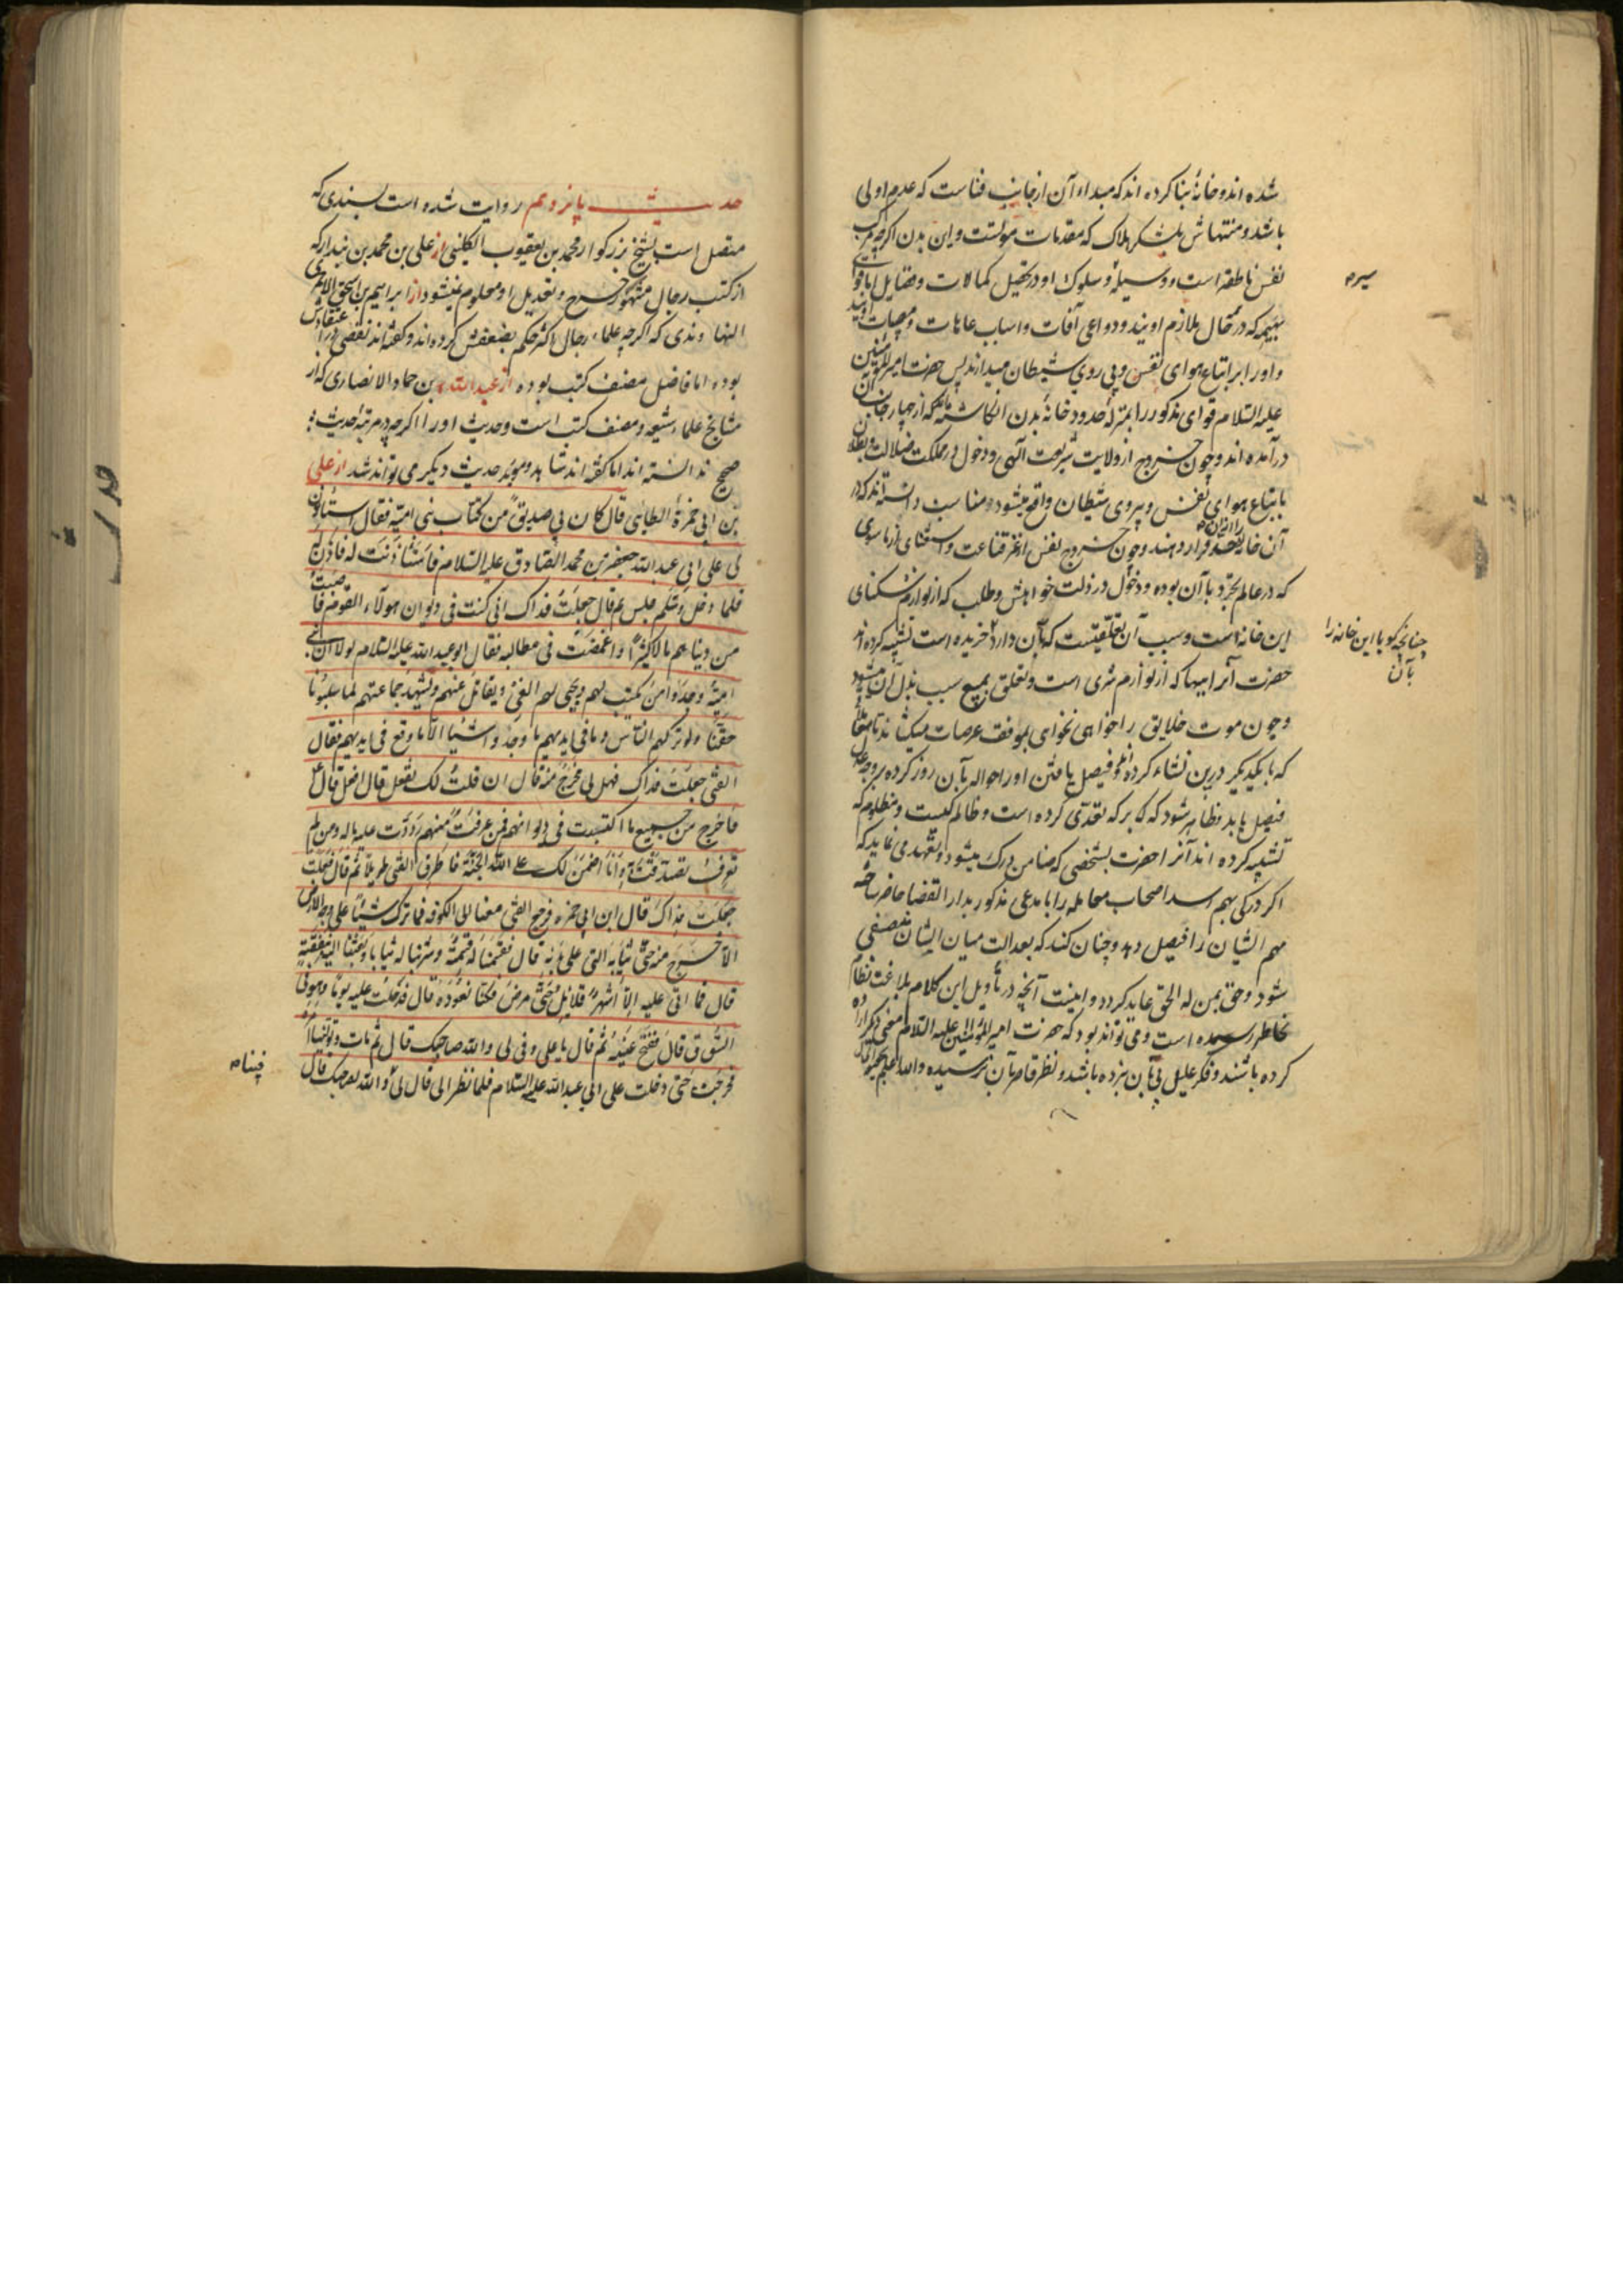 شده اند و خانهٔ بنا کرده اند که مبداء آن از جانب فناست که عدم اولی
باشد و منتهاش بلشکر هلاک که مقدمات موتست و این بدن اکرچه مرکب
نفس ناطقه است و وسیلهٔ سلوک او در تحصیل کمالات و فضایل اما قوای
بهیمه که در همه حال ملازم اویند و دواعی آفات و اسباب عاهات و مصیبات اویند
و او را بر اتباع هوای نفس و پی روی شیطان میدارند پس حضرت امیر المؤمنین
علیه السلام قوای مذکور را بمنزلهٔ حدود خانهٔ بدن انکاشته که از چهار جانب آن
در آمده اند و چون خروج از ولایت شریعت الهی و دخول در مملکت ضلالت
باتباع هوای نفس و پیروی شیطان واقع میشود مناسب دانسته اند که در
آن خانه را از آن حد قرار دهند و چون خروج نفس از عز قناعت و استغنای از ماسوی
که در عالم تجرد با آن بوده و دخول در ذلت خواهش و طلب که از لوازم سکنای
این خانه است و سبب آن تعلقیست که بآن دارد خریده است تشبیه کرده اند
حضرت آنرا ببها که از لوازم شری است و تعلق بمبیع سبب بذل آن میشود
و چون موت خلایق را خواهی نخواهی بموقف عرصات میکشاند تا معاملهٔ
که با یکدیکر درین نشاء کرده اند و فیصل یافتن او را حواله بآن روز کرده بر وجه عدل
فیصل یابد و ظاهر شود که که بر که تعدی کرده است و ظالم کیست و مظلوم که
تشبیه کرده اند آنرا حضرت بشخصی که ضامن درک میشود و تعهد می نماید که
اکر درکی بهم رسد اصحاب معامله را با مدعی مذکور بدار القضا حاضر ساخته
مهم ایشان را فیصل دهد و چنان کند که بعدالت میان ایشان منصفی
شود و حق بمن له الحق عاید کردد و اینست آنچه در تأویل این کلام بلاغت نظام
بخاطر رسیده است و می تواند بود که حضرت امیر المؤمنین علیه السلام معنی دیکر اراده
کرده باشند و فکر علیل پی بآن نبرده باشد و نظر قاصر بآن نرسیده والله اعلم
چنانچه کویا این خانه را
بآن
حدیث پانزدهم روایت شده است بسندی که
متصل است بشیخ بزرکوار محمد بن یعقوب الکلینی از علی بن محمد بن بندار که
از کتب رجال مشهور جرح و تعدیل او معلوم نمیشود از ابراهیم بن اسحق الاحمری
النهاوندی که اکرچه علماء رجال اکثر حکم بضعفش کرده اند و کفته اند نقصی در اعتقادش
بوده اما فاضل مصنف کتب بوده از عبد الله بن حماد الانصاری که از
مشایخ علماء شیعه و مصنف کتب است و حدیث او را اکرچه در مرتبهٔ حدیث
صحیح ندانسته اند اما کفته اند شاهد و موید حدیث دیکر می تواند شد از علی
بن ابی حمزة البطاینی قال کان لی صدیق من کتاب بنی امیه فقال استأذن
لی علی ابی عبد الله جعفر بن محمد الصادق علیه السلام فاستأذنت له فاذن له
فلما دخل وسلم جلس ثم قال جعلت فداک انی کنت فی دیوان هولاء القوم فاصبت
من دنیاهم مالا کثیرا واغمضت فی مطالبه فقال ابو عبد الله علیه السلام لولا ان بنی
امیة وجدوا من یکتب لهم ویجبی لهم الفیٔ ویقاتل عنهم ویشهد جماعتهم لما سلبونا
حقنا ولو ترکهم الناس وما فی ایدیهم ما وجدوا شیئا الا ما وقع فی ایدیهم فقال
الفتی جعلت فداک فهل لی مخرج منه قال ان قلت لک تفعل قال افعل قال
فاخرج من جمیع ما اکتسبت فی دیوانهم فمن عرفت منهم رددت علیه ماله ومن لم
تعرف تصدقت به وانا اضمن لک علی الله الجنة فاطرق الفتی طویلا ثم قال فعلت
جعلت فداک قال ابن ابی حمزه فرجع الفتی معنا الی الکوفه فما ترک شیئا علی وجه الارض
الا خرج منه حتی ثیابه التی علی بدنه قال فقسمنا له قسمة وشرینا له ثیابا وبعثنا الیه بنفقة
قال فما اتی علیه الا اشهر قلایل حتی مرض فکنا نعوده قال فدخلت علیه یوما وهو فی
السوق قال ففتح عینیه ثم قال یا علی وفی لی والله صاحبک قال ثم مات وتولینا امره
فخرجت حتی دخلت علی ابی عبد الله علیه السلام فلما نظر الی قال لی والله لصاحبک قال